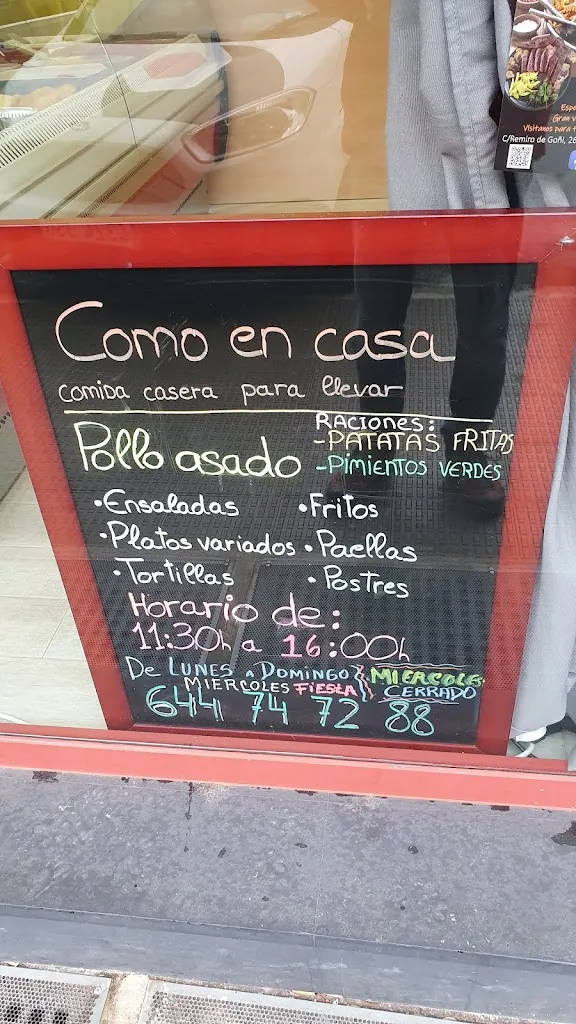 Espe
Gran v
Visítanos para t
C/Remiro de Goñi, 26
Como en casa
comida casera para llevar
Pollo asado
RACIONES:
-PATATAS FRITAS
-PIMIENTOS VERDES
•Ensaladas
•Fritos
•Platos variados
•Paellas
•Tortillas
•Postres
Horario de:
11:30h a 16:00h
De LUNES a DOMINGO
MIERCOLES FIESTA
MIERCOLES
CERRADO
644 74 72 88